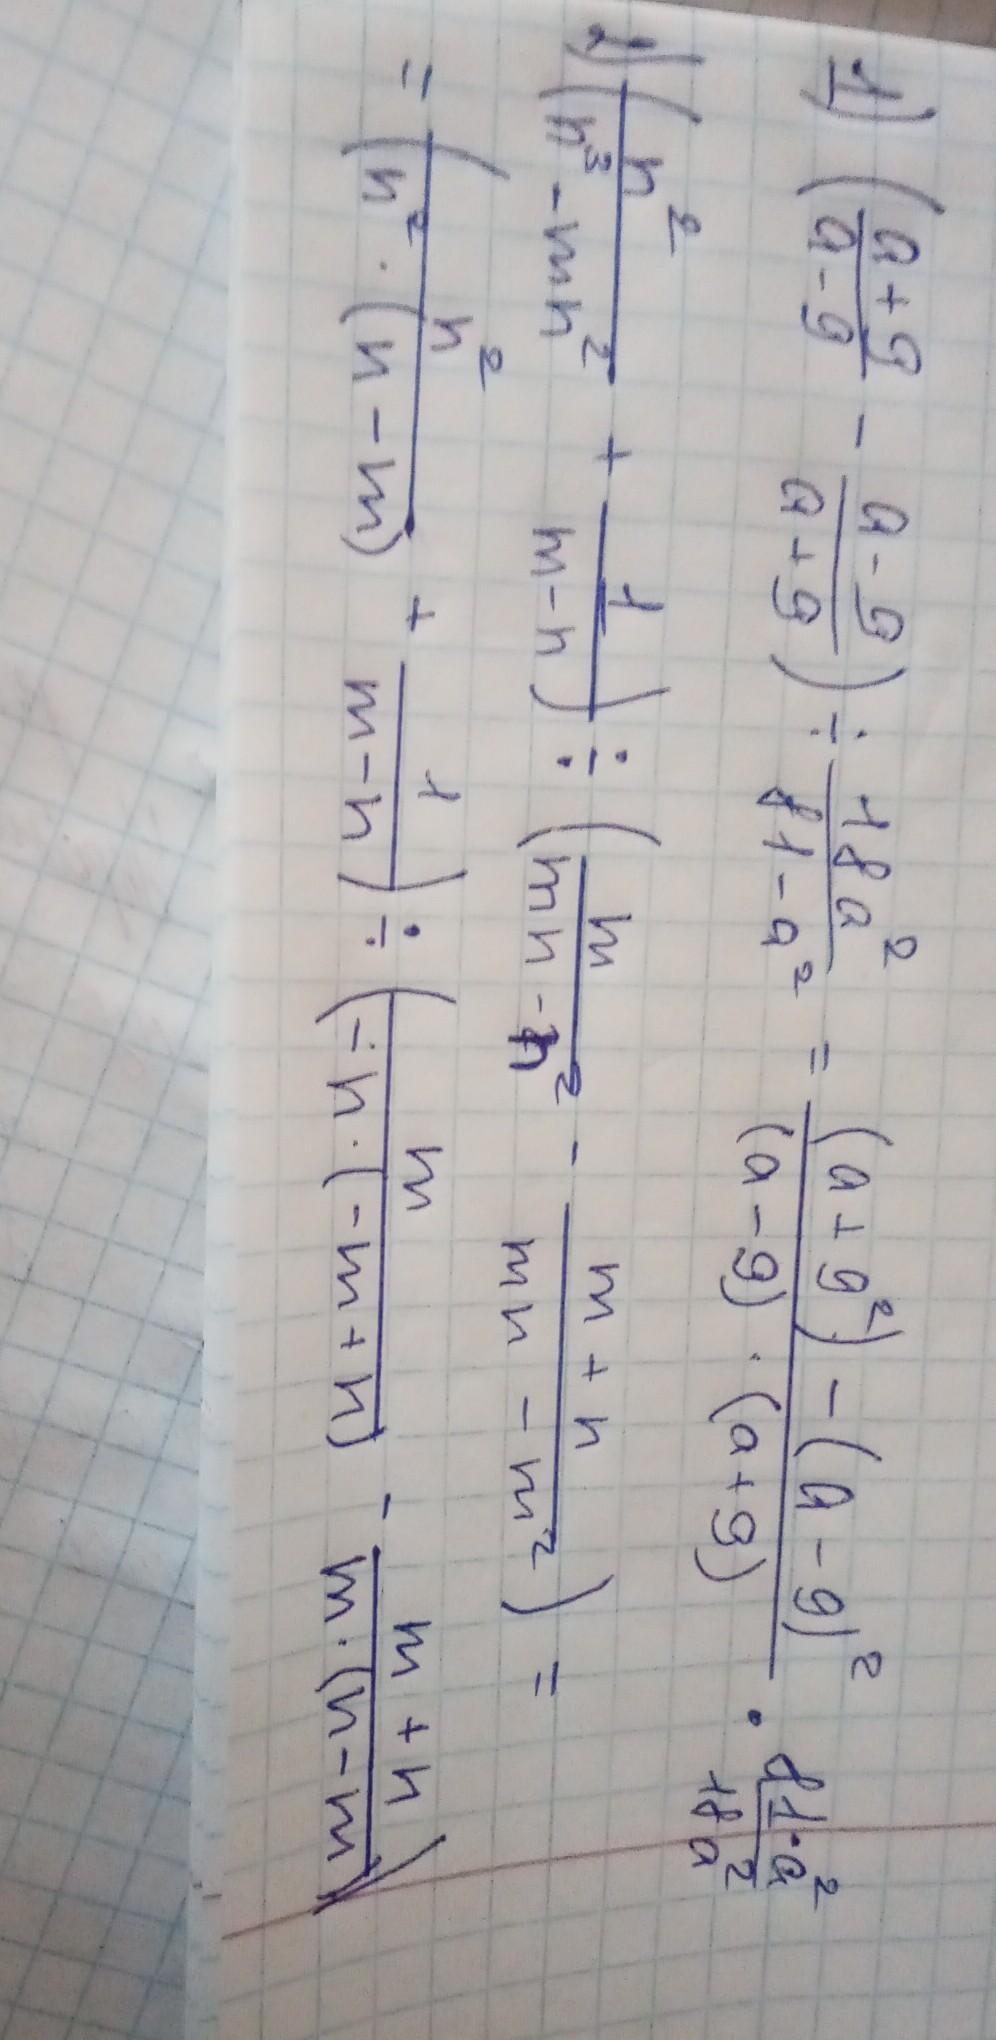 1) ((a+9)/(a-9) - (a-9)/(a+9)) ÷ 18a²/(81-a²) = ((a+9²) - (a-9)²)/((a-9)·(a+9)) · (81-a²)/(18a²)
2) (n²/(n³-mn²) + 1/(m-n)) ÷ (m/(mn-n²) - (m+n)/(mn-m²)) =
= (n²/(n²·(n-m)) + 1/(m-n)) ÷ (m/(-n·(-m+n)) - (m+n)/(m·(n-m)))